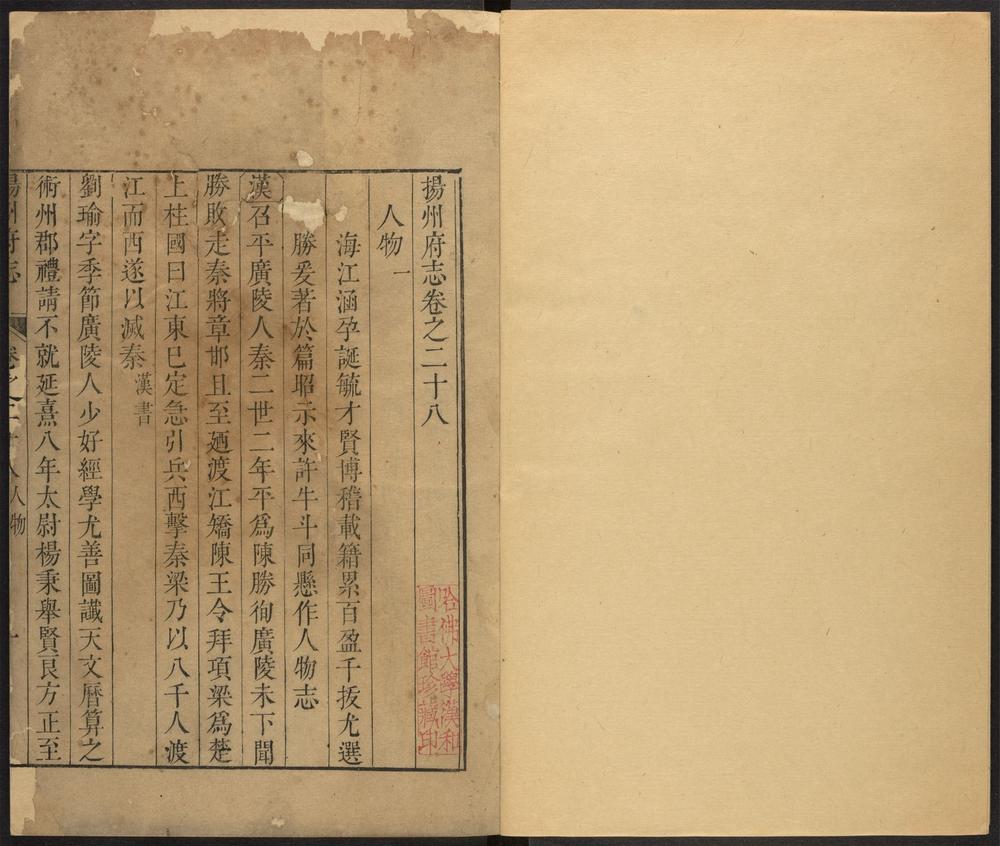 揚州府志卷之二十八
人物一
海江涵孕誕毓才賢博稽載籍累百盈千抜尤選
勝爰著於篇昭示來許牛斗同懸作人物志
漢召平廣陵人秦二世二年平爲陳勝徇廣陵未下聞
勝敗走秦將章邯且至廼渡江矯陳王令拜項梁爲楚
上柱國曰江東已定急引兵西擊秦梁乃以八千人渡
江而西遂以滅秦漢書
劉瑜字季節廣陵人少好經學尤善圖讖天文曆算之
術州郡禮請不就延熹八年太尉楊秉舉賢良方正至
揚州府志 卷之二十八人物 一
哈佛大學漢和
圖書館珍藏印